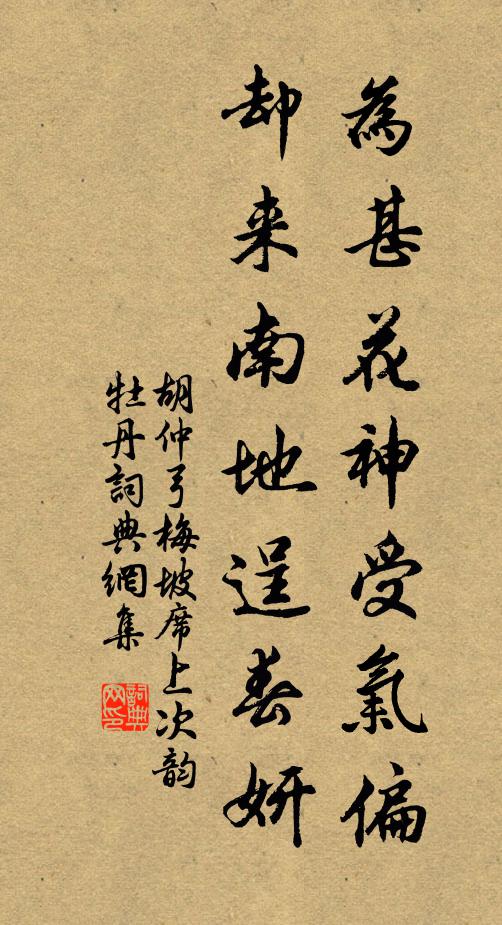 為甚花神受氣偏
却来南地逞春妍
胡仲弓梅坡席上次韵
牡丹詞典網集
詞典
网印